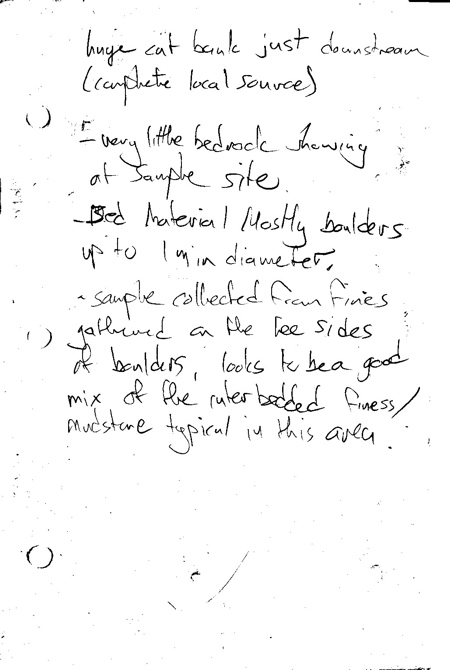 huge cut bank just downstream
(complete local source)
- very little bedrock showing
at sample site.
- Bed Material Mostly boulders
up to 1 m in diameter.
- sample collected from fines
gathered on the lee sides
of boulders, looks to be a good
mix of the interbedded finess/
mudstone typical in this area.